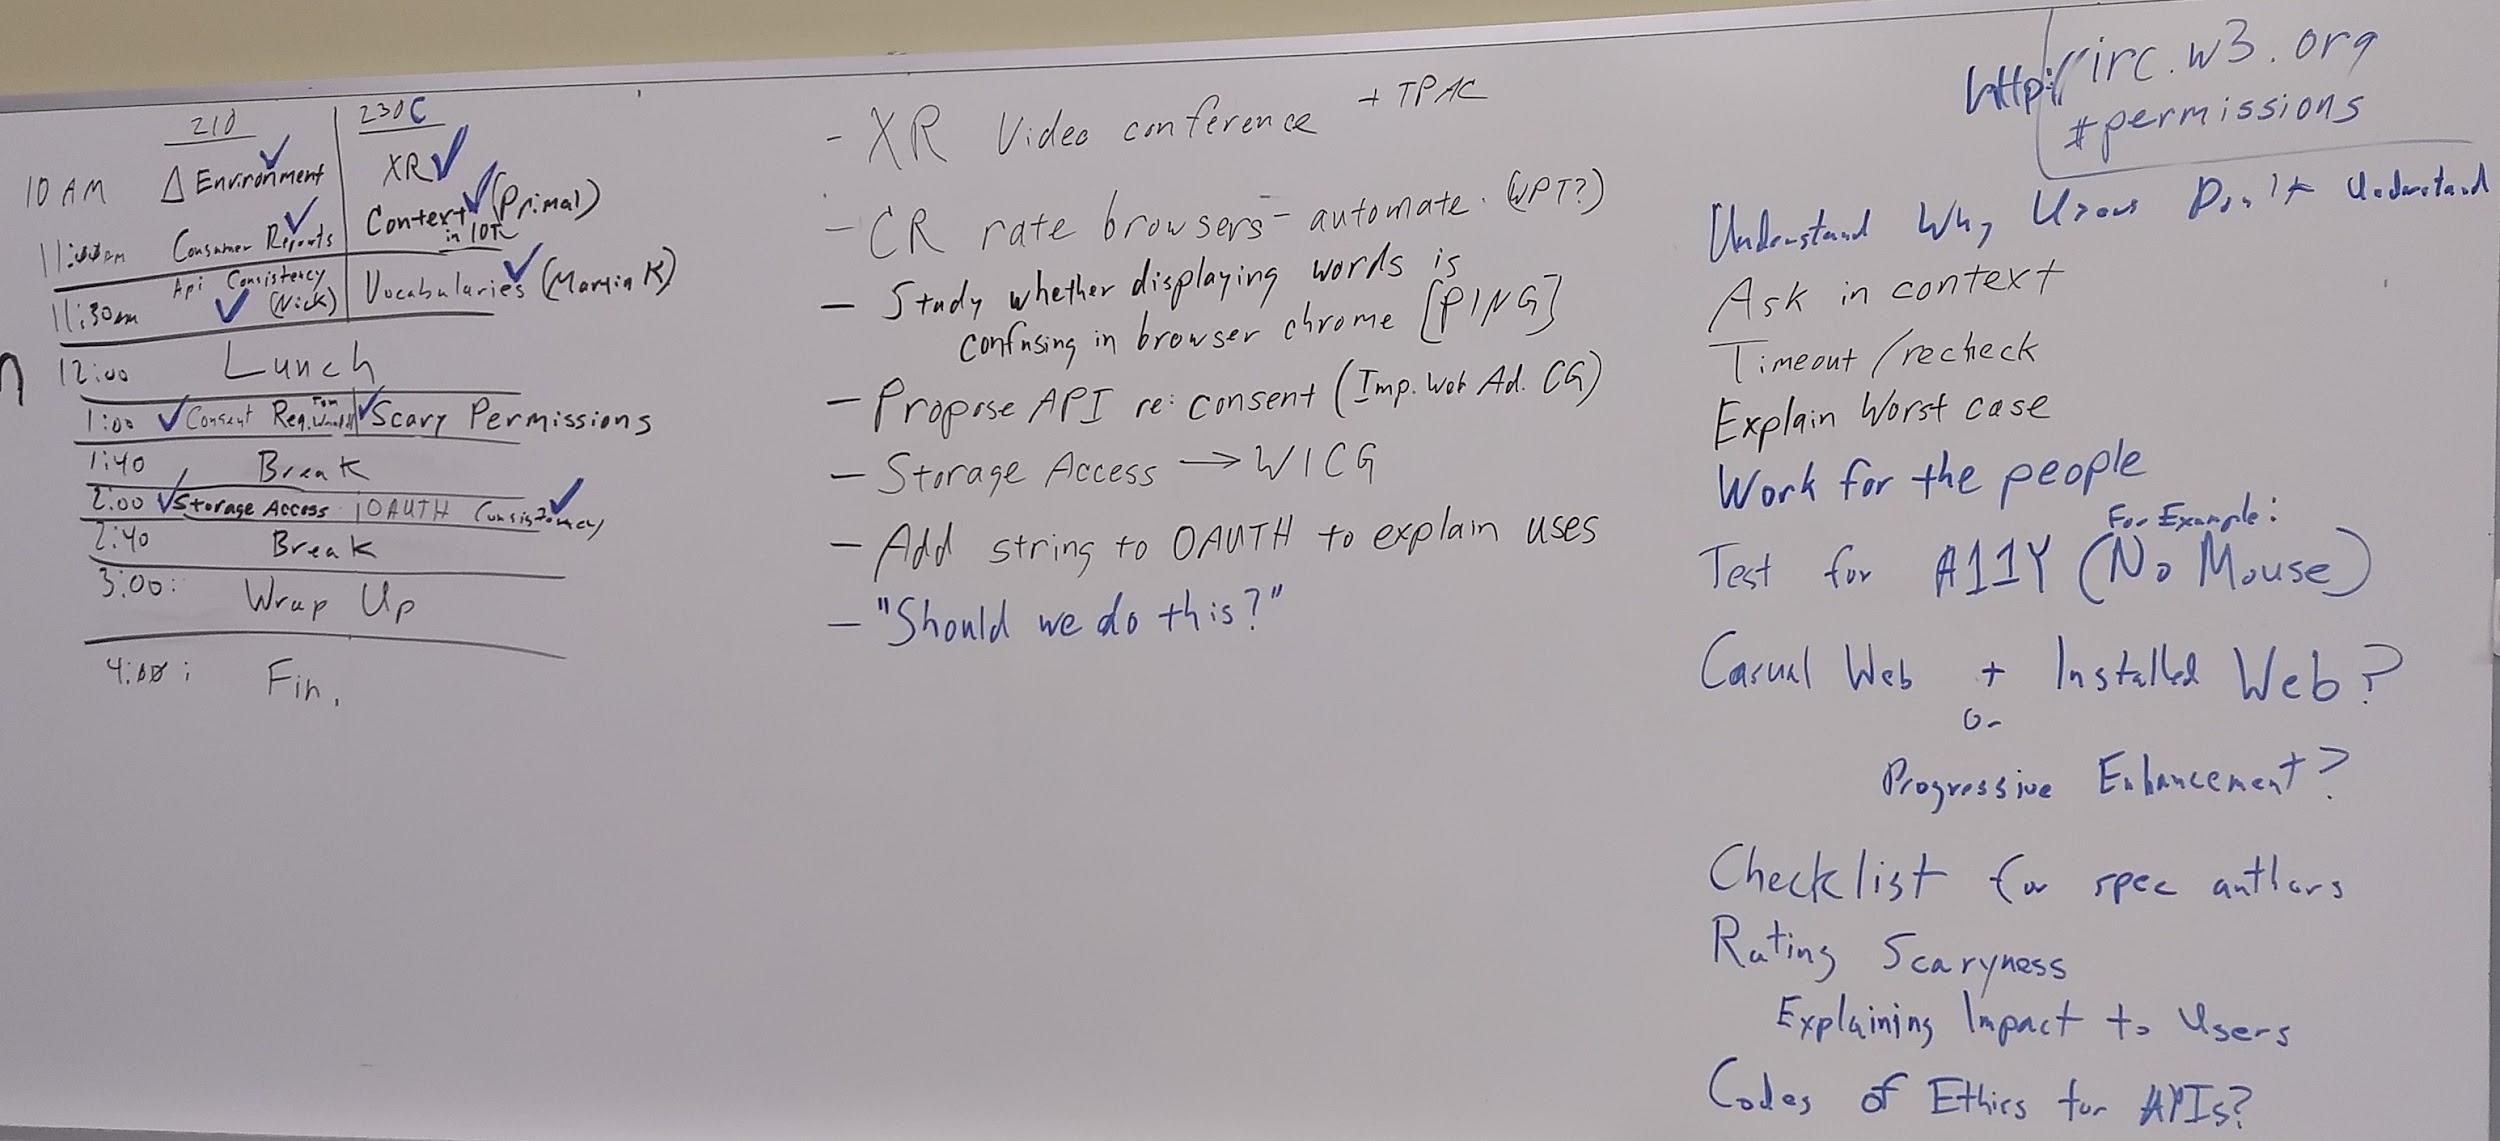 210 230C
10 AM Δ Environment XR
Context (Primal)
in IOT
11:00am Consumer Reports
11:30am Api Consistency
(Nick) Vocabularies (Martin K)
12:00 Lunch
1:00 Consent Req. Tom Scary Permissions
1:40 Break
2:00 Storage Access OAUTH Consistency
2:40 Break
3:00: Wrap Up
4:00: Fin.
- XR Video conference + TPAC
- CR rate browsers - automate. (WPT?)
- Study whether displaying words is
confusing in browser chrome [PING]
- Propose API re: consent (Imp. Web Ad. CG)
- Storage Access → WICG
- Add string to OAUTH to explain uses
- "Should we do this?"
http://irc.w3.org
#permissions
Understand Why Users Don't Understand
Ask in context
Timeout / recheck
Explain Worst case
Work for the people
For Example:
Test for A11Y (No Mouse)
Casual Web + Installed Web?
or
Progressive Enhancement?
Checklist for spec authors
Rating Scaryness
Explaining Impact to Users
Codes of Ethics for APIs?